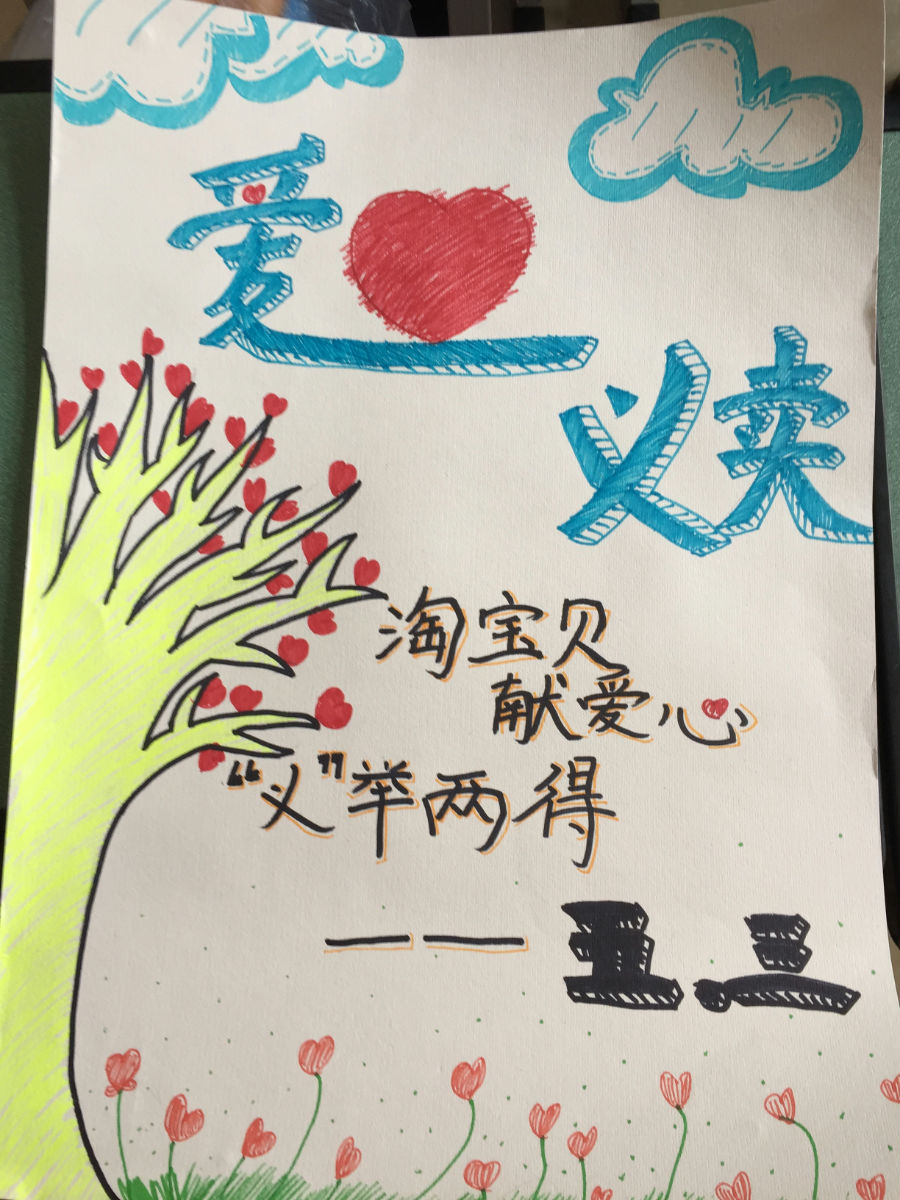 爱
义卖
淘宝贝
献爱心
“义”举两得
——五.三